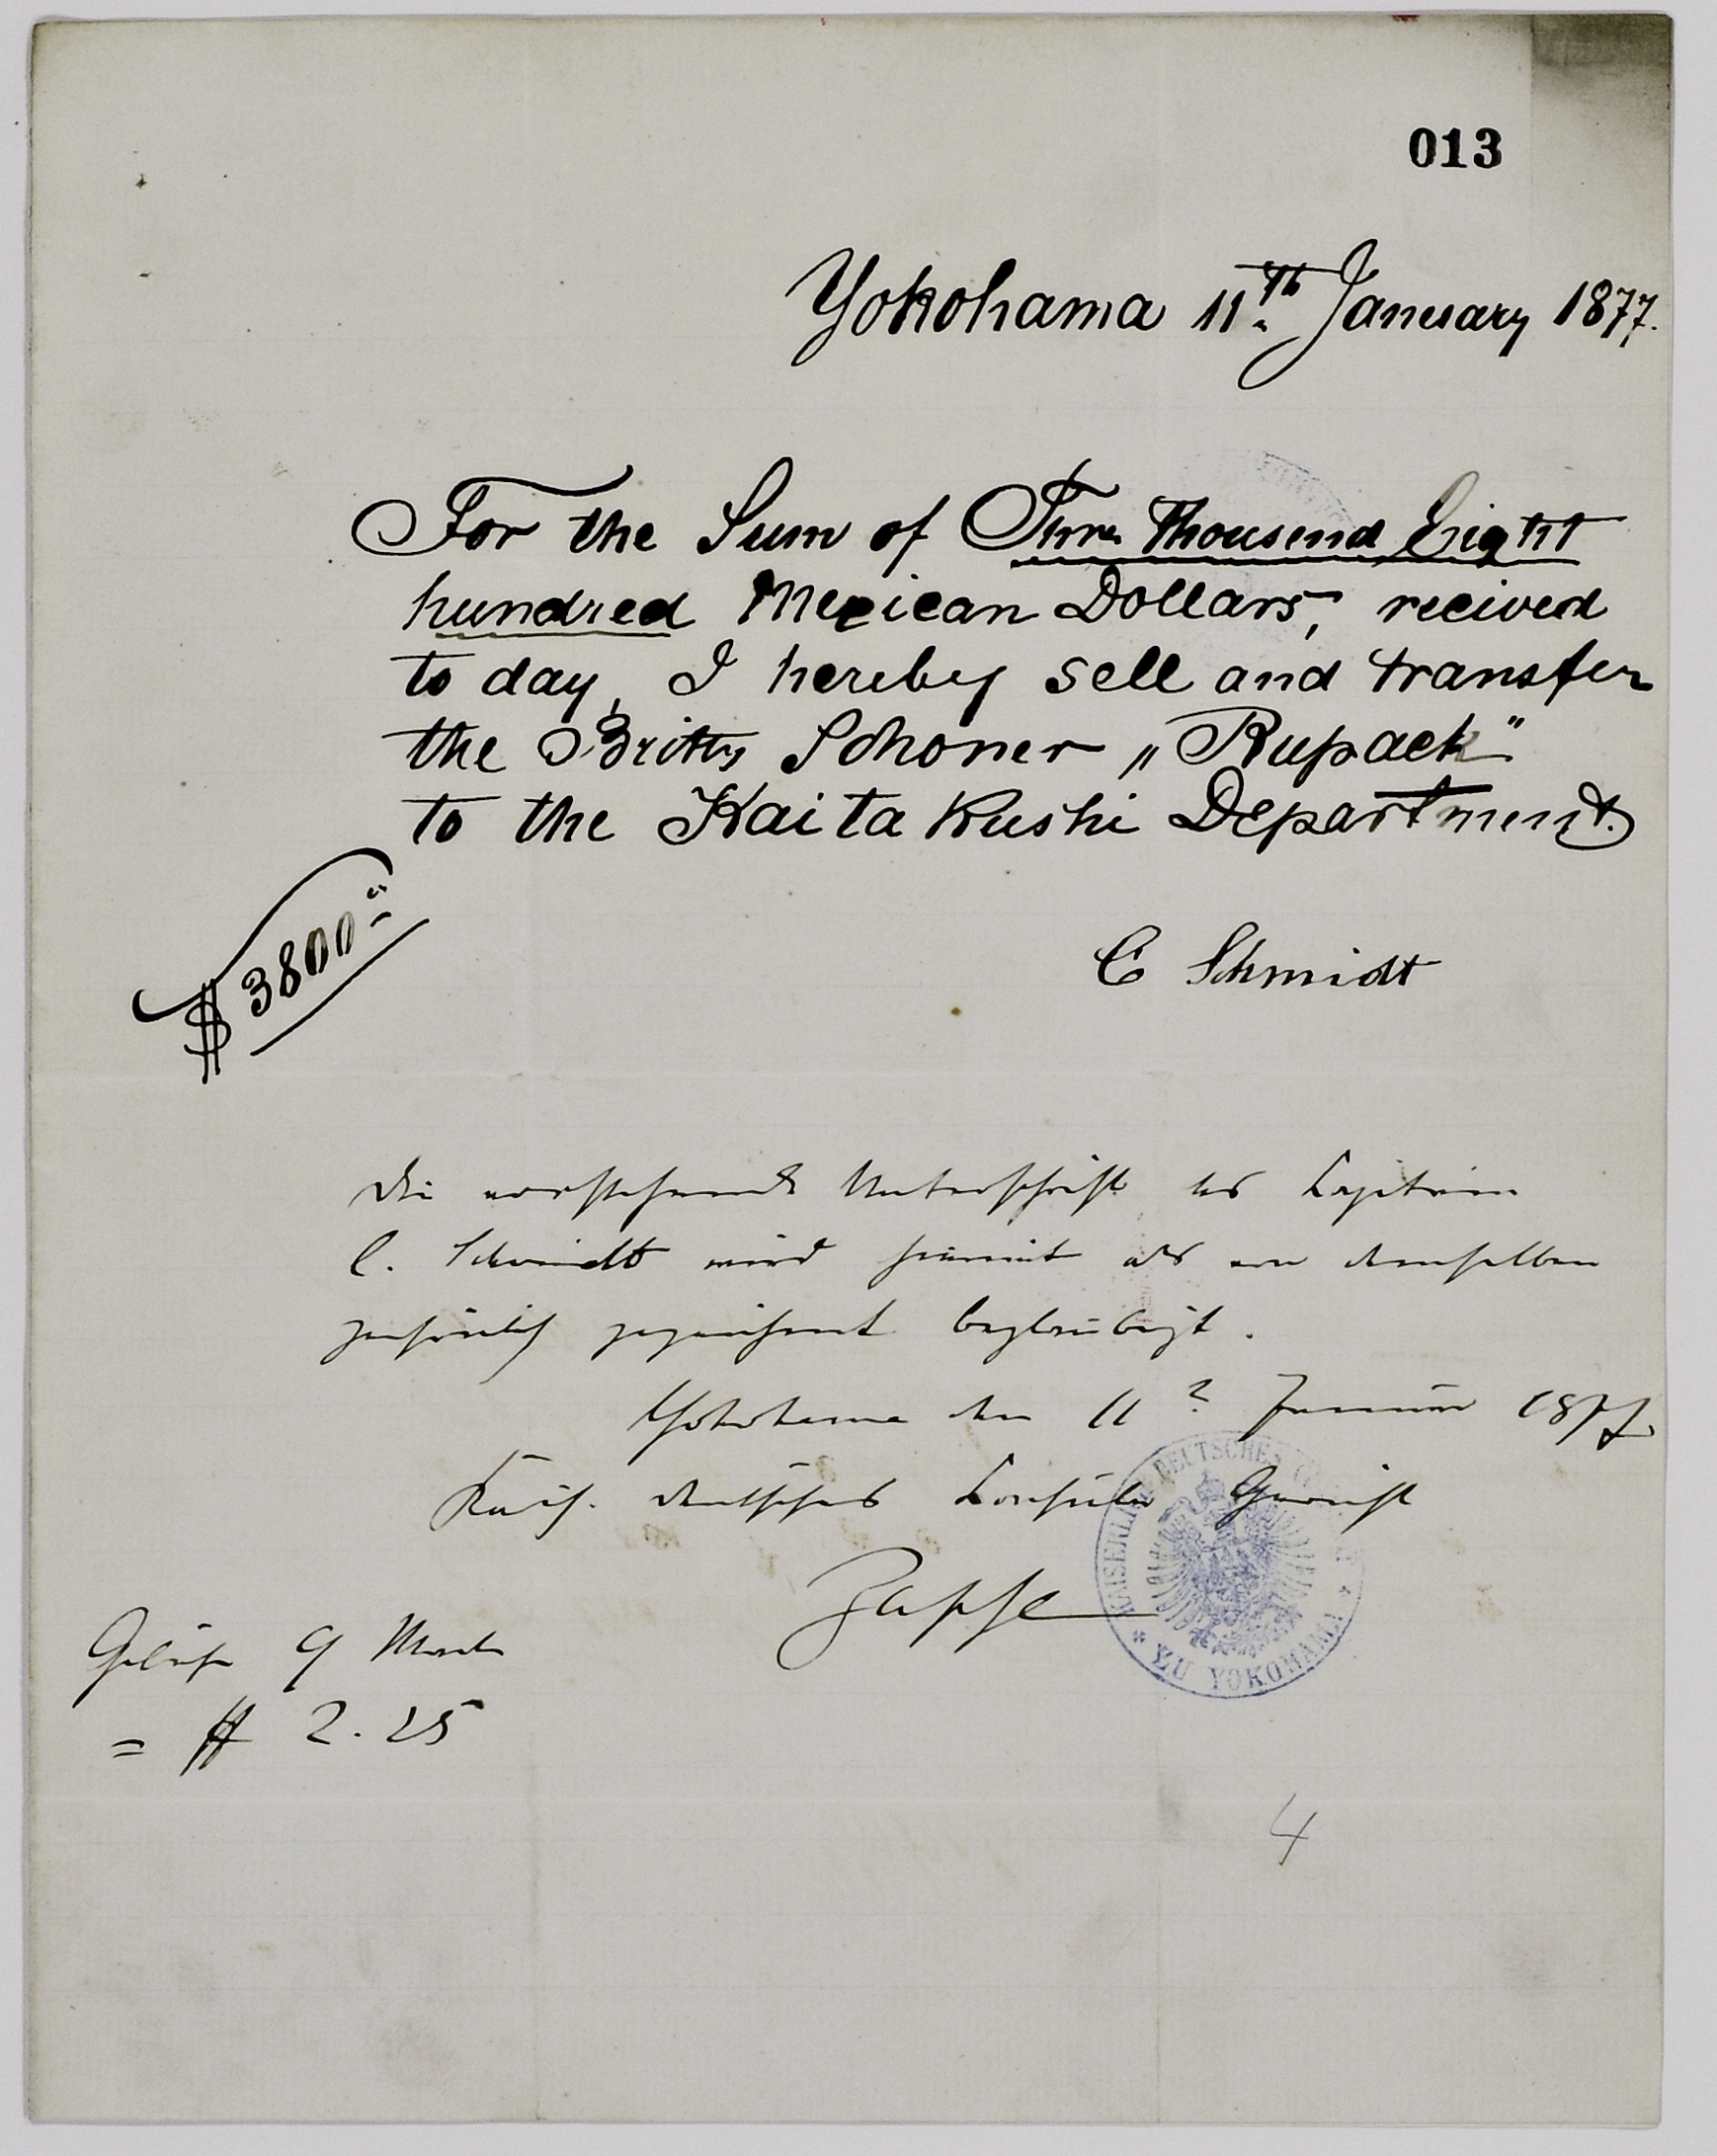 013
Yokohama 11th January 1877.
For the Sum of Three Thousend Eight
hundred Mexican Dollars, recived
to day, I hereby sell and transfer
the Brittsh Schoner „Rupack"
to the Kai ta Kushi Department.
$ 3800
C Schmidt
Die vorstehende Unterschrift des Capitain
C. Schmidt wird hiermit als von demselben
persönlich gezeichnet beglaubigt.
Yokohama den 11 Januar 1877.
Kais. deutsches Consular Gericht
Zappe
KAISERLICH DEUTSCHES
ZU YOKOHAMA
Gebühr 9 Mark
= $ 2.25
4